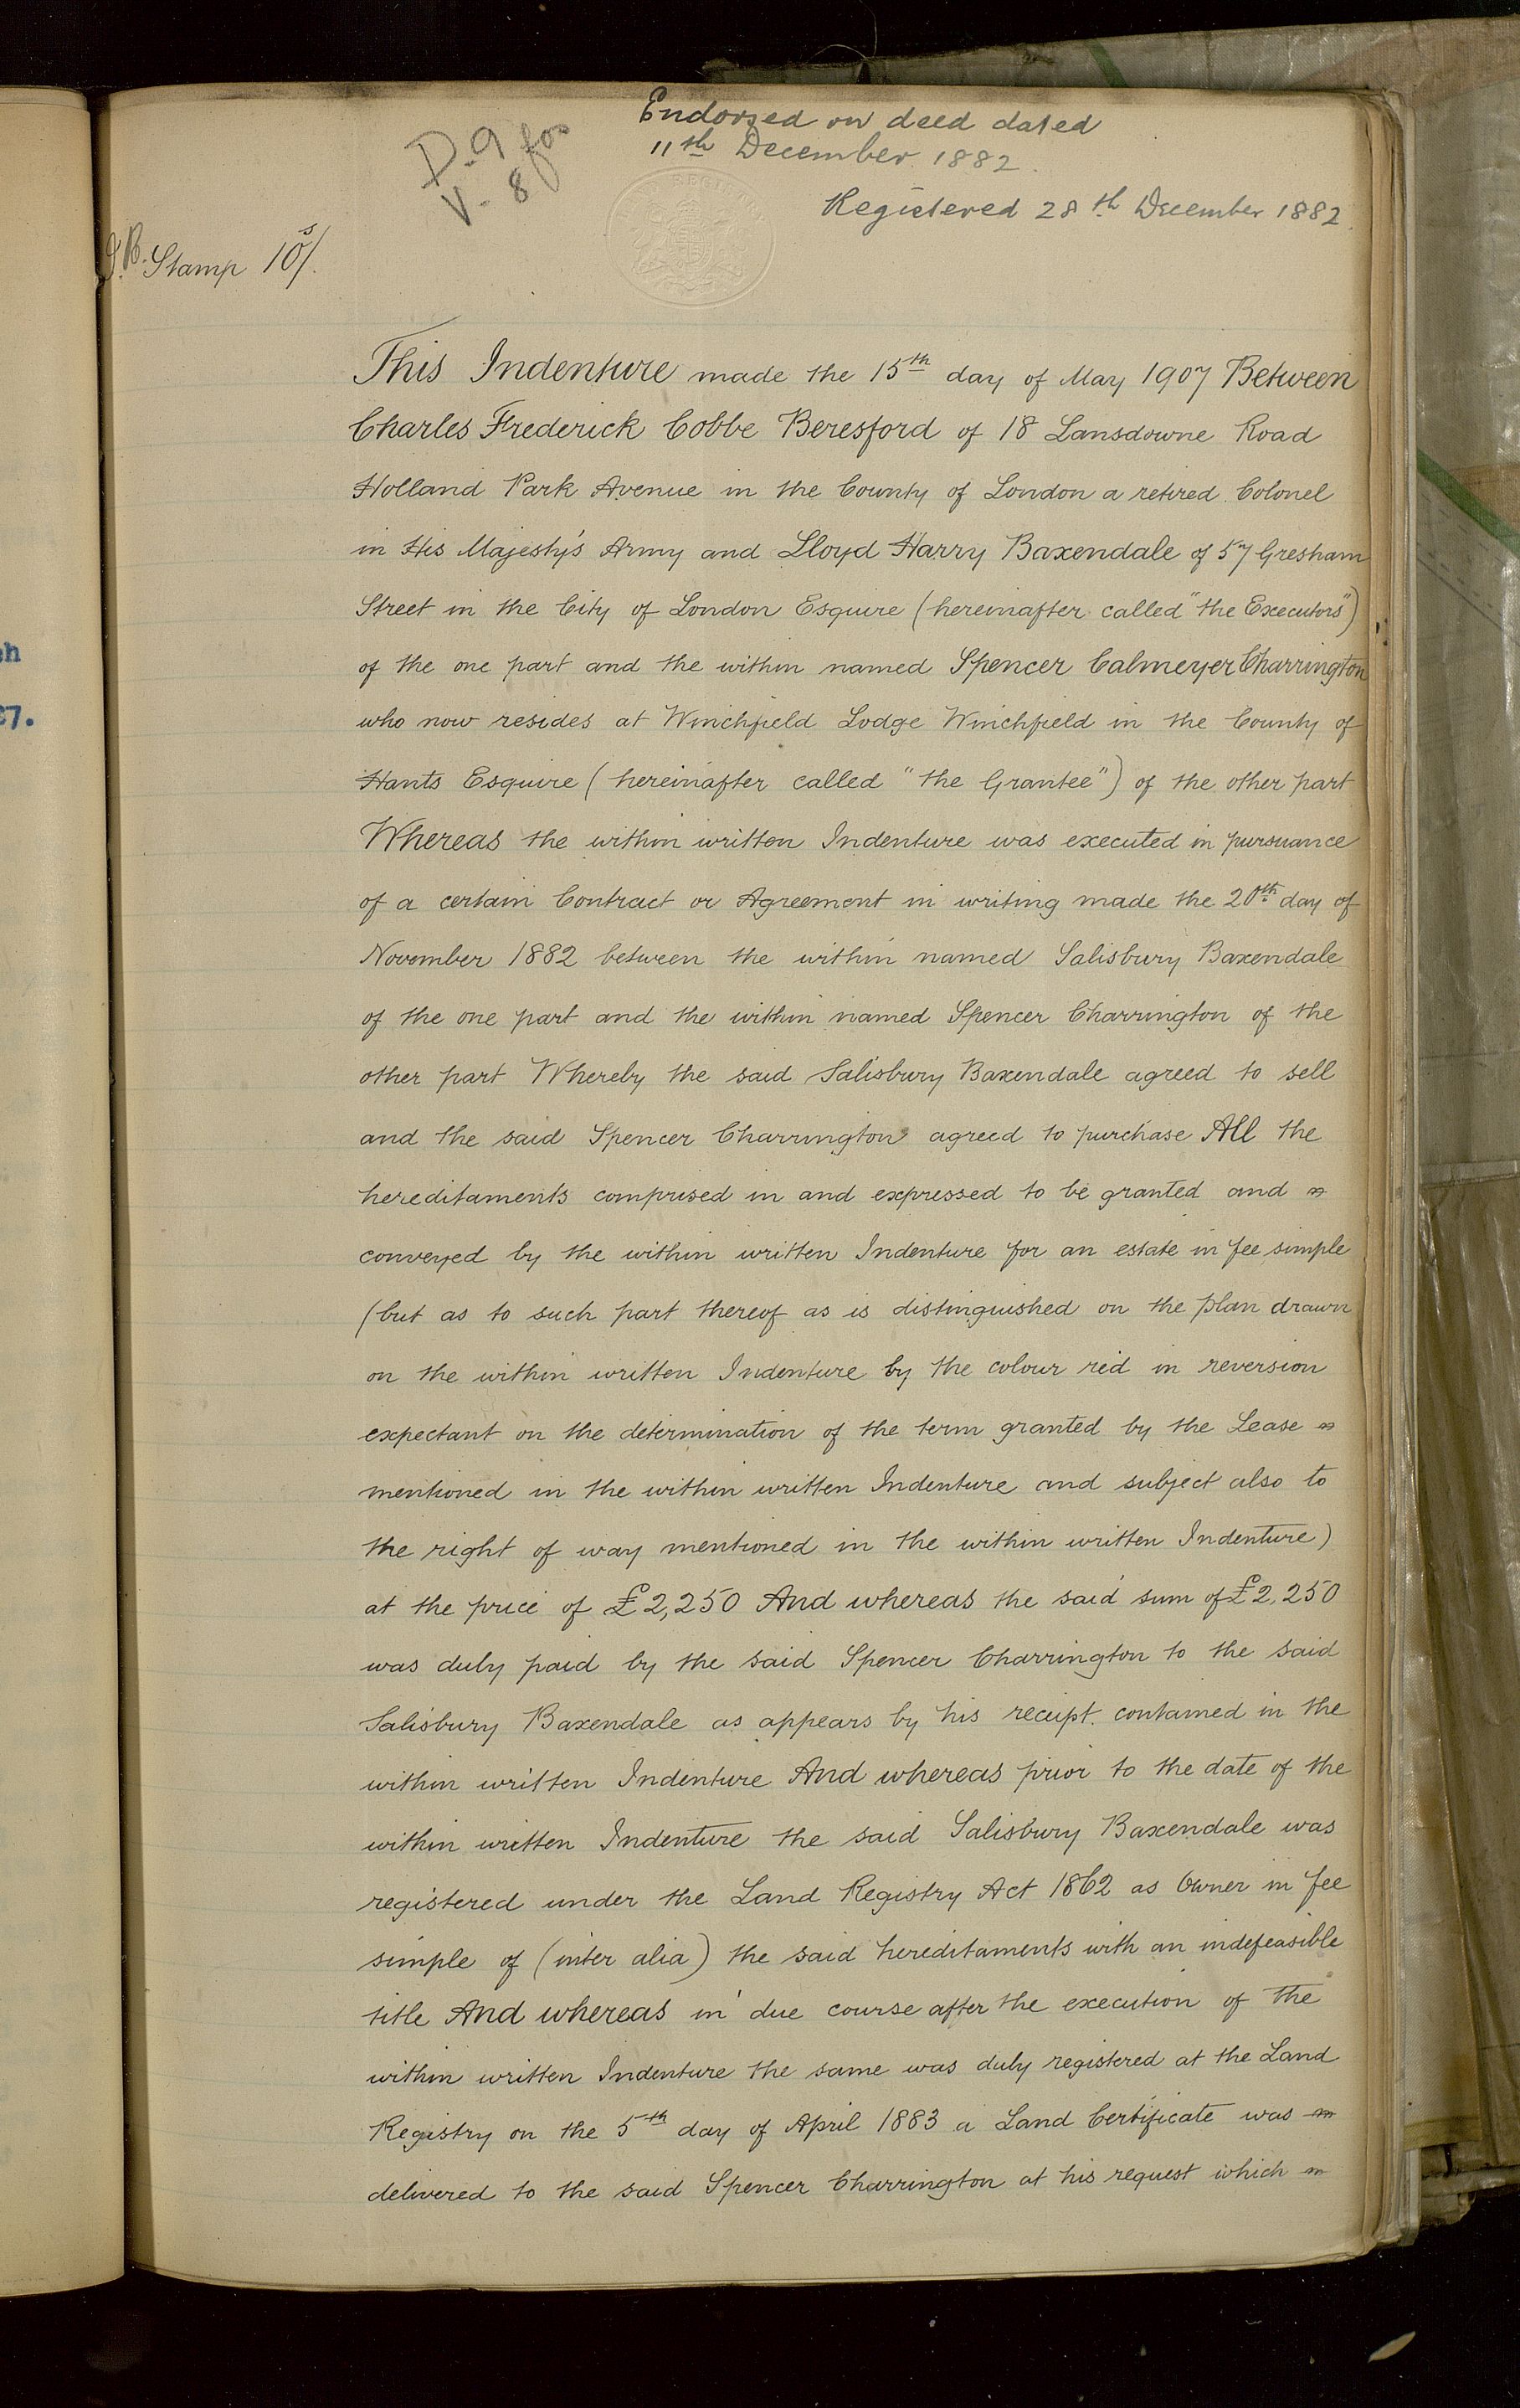 D. 9 fos
V. 8
Endorsed on deed dated
11th December 1882.
Registered 28th December 1882.
Stamp 10s/.
This Indenture made the 15th day of May 1907 Between
Charles Frederick Cobbe Beresford of 18 Lansdowne Road
Holland Park Avenue in the County of London a retired Colonel
in His Majesty's Army and Lloyd Harry Baxendale of 57 Gresham
Street in the City of London Esquire (hereinafter called "the Executors")
of the one part and the within named Spencer Calmeyer Charrington
who now resides at Winchfield Lodge Winchfield in the County of
Hants Esquire (hereinafter called "the Grantee") of the other part
Whereas the within written Indenture was executed in pursuance
of a certain Contract or Agreement in writing made the 20th day of
November 1882 between the within named Salisbury Baxendale
of the one part and the within named Spencer Charrington of the
other part Whereby the said Salisbury Baxendale agreed to sell
and the said Spencer Charrington agreed to purchase All the
hereditaments comprised in and expressed to be granted and
conveyed by the within written Indenture for an estate in fee simple
(but as to such part thereof as is distinguished on the plan drawn
on the within written Indenture by the colour red in reversion
expectant on the determination of the term granted by the Lease
mentioned in the within written Indenture and subject also to
the right of way mentioned in the within written Indenture)
at the price of £2,250 And whereas the said sum of £2,250
was duly paid by the said Spencer Charrington to the said
Salisbury Baxendale as appears by his receipt contained in the
within written Indenture And whereas prior to the date of the
within written Indenture the said Salisbury Baxendale was
registered under the Land Registry Act 1862 as Owner in fee
simple of (inter alia) the said hereditaments with an indefeasible
title And whereas in due course after the execution of the
within written Indenture the same was duly registered at the Land
Registry on the 5th day of April 1883 a Land Certificate was
delivered to the said Spencer Charrington at his request which